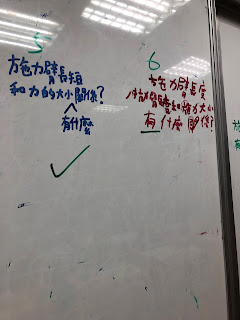 5
施力臂長短
和力的大小關係?
有什麼
6
施力臂長度
和施力大小
有什麼關係?